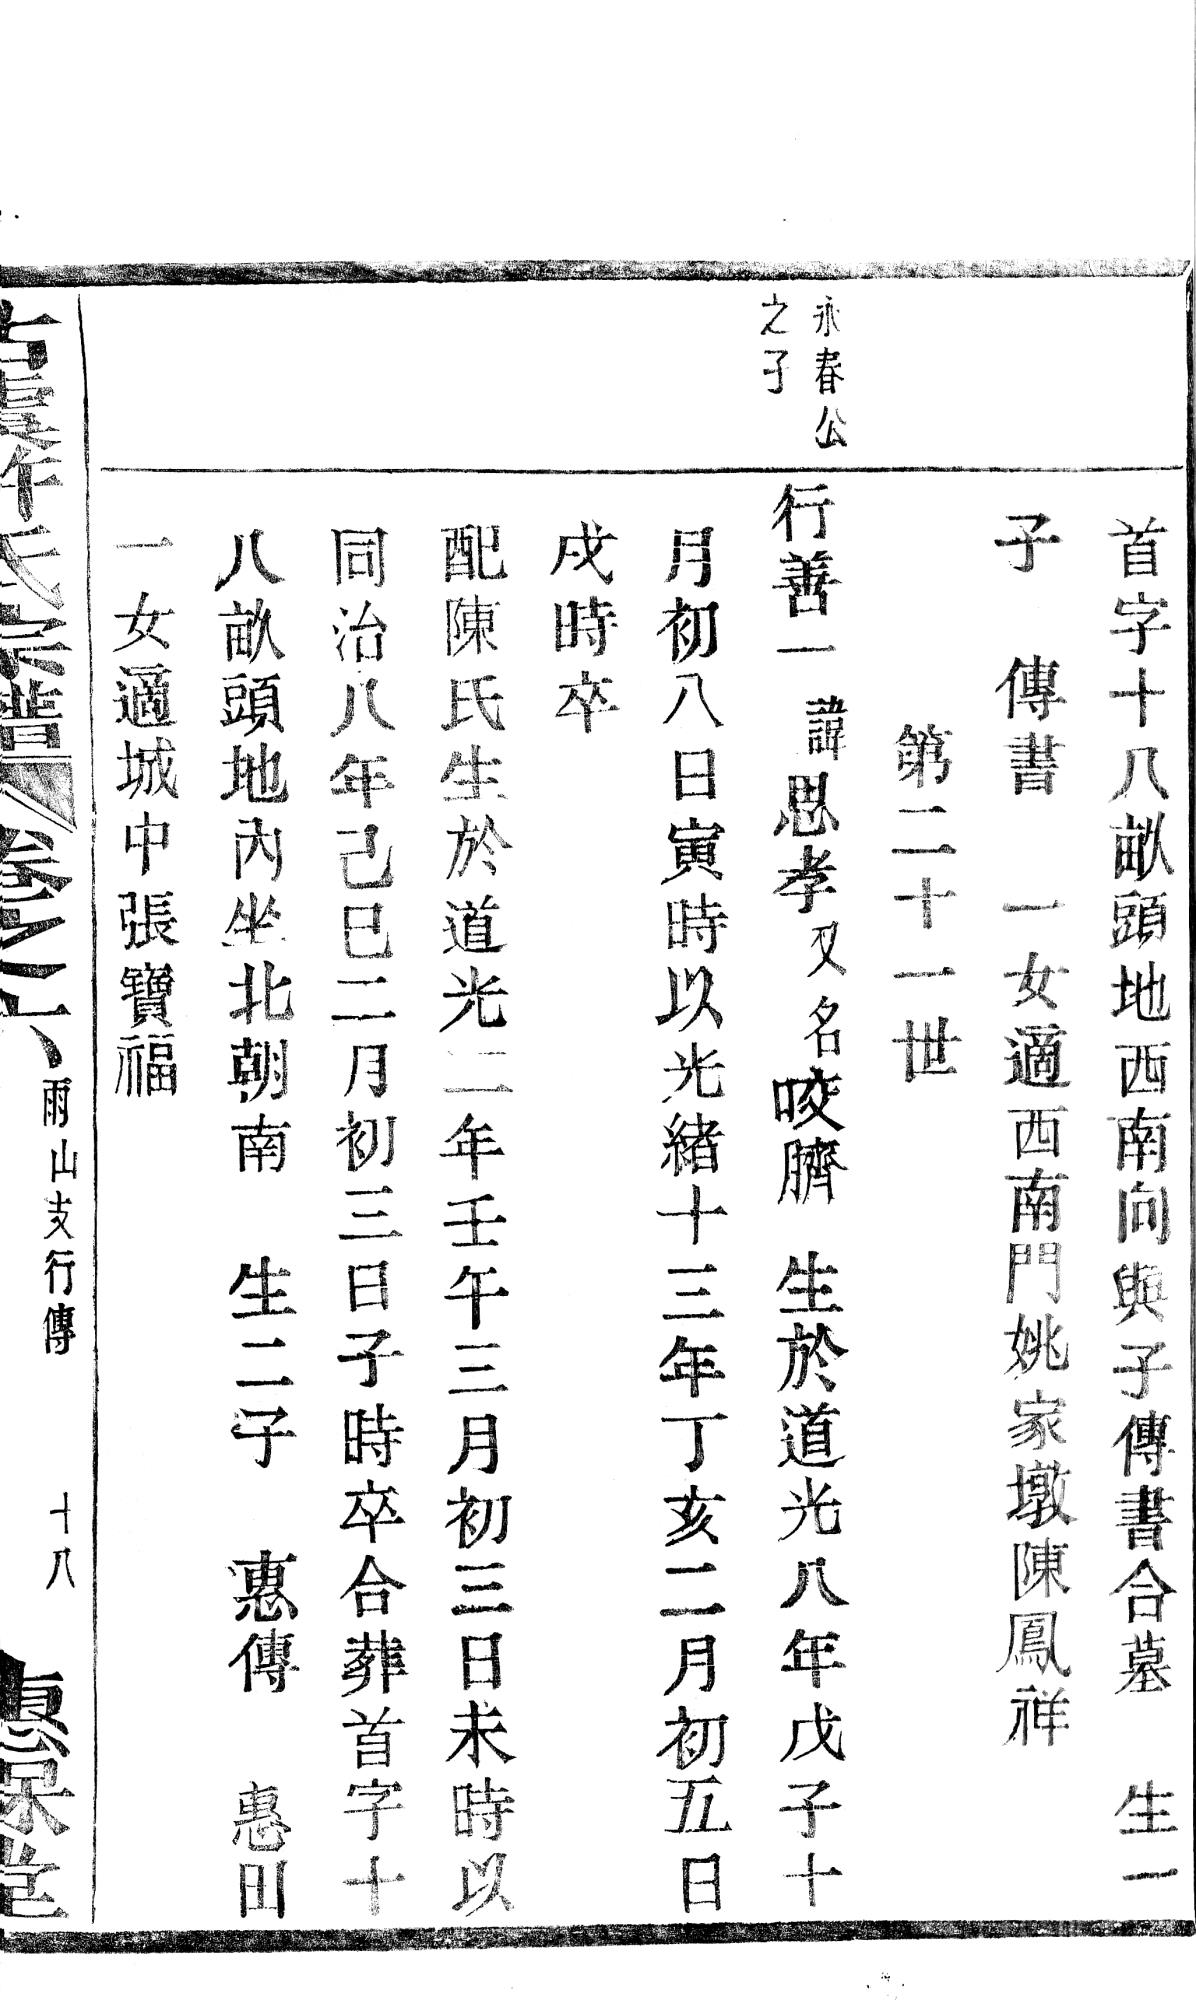 首字十八畝頭地西南向與子傳書合墓　生一
子　傳書　一女適西南門姚家墩陳鳳祥
第二十一世
永春公
之子
行善一　諱思孝又名咬臍　生於道光八年戊子十
月初八日寅時以光緒十三年丁亥二月初五日
戌時卒
配陳氏生於道光二年壬午三月初三日未時以
同治八年己巳二月初三日子時卒合葬首字十
八畝頭地內坐北朝南　生二子　惠傳　惠田
一女適城中張寶福
古虞許氏宗譜　卷之六　雨山支行傳　十八　惠保堂